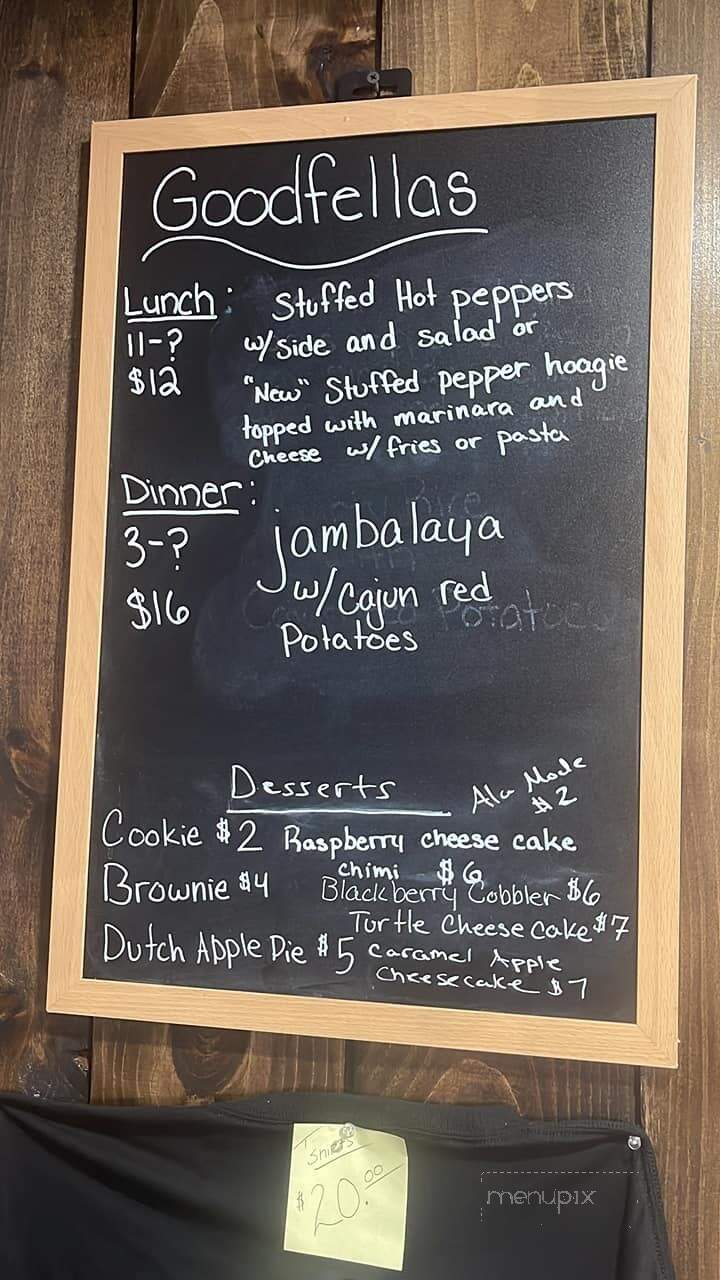 Goodfellas
Lunch: Stuffed Hot peppers
11-? w/side and salad or
$12 "New" Stuffed pepper hoagie
topped with marinara and
Cheese w/ fries or pasta
Dinner:
3-? jambalaya
$16 w/Cajun red
Potatoes
Desserts
Ala Mode
$2
Cookie $2 Raspberry cheese cake
chimi $6
Brownie $4 Blackberry Cobbler $6
Turtle Cheese cake $7
Dutch Apple Pie $5 Caramel Apple
Cheesecake $7
T
Shirts
$20.00
menupix